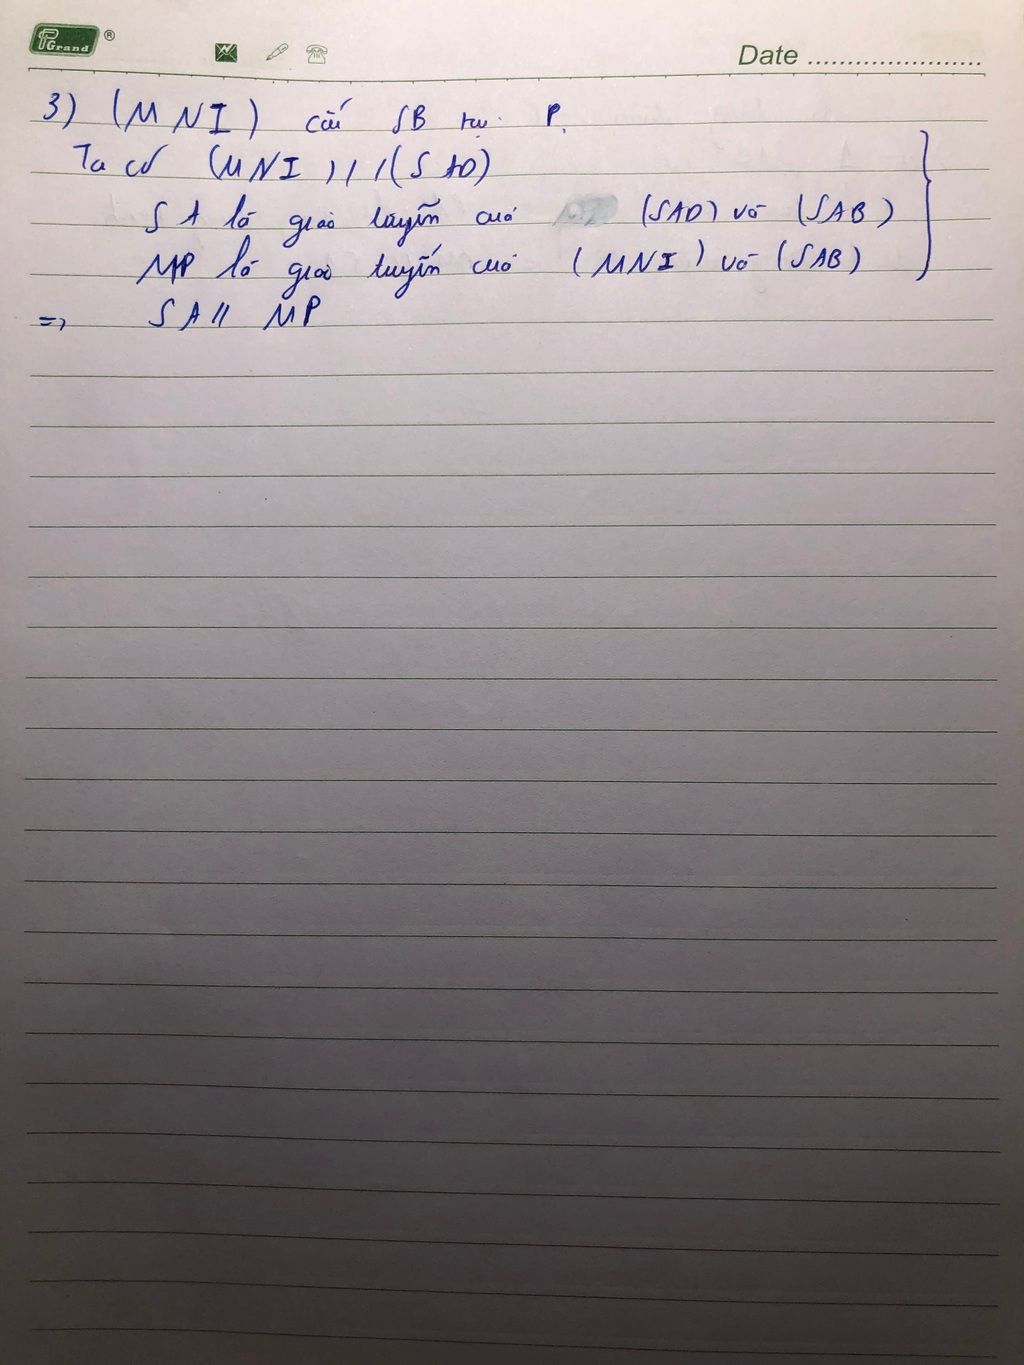 PGrand ®
Date ......................
3) (MNI) cắt SB tại P.
Ta có (MNI) // (SAD)
SA là giao tuyến của (SAD) và (SAB)
MP là giao tuyến của (MNI) và (SAB)
=> SA // MP